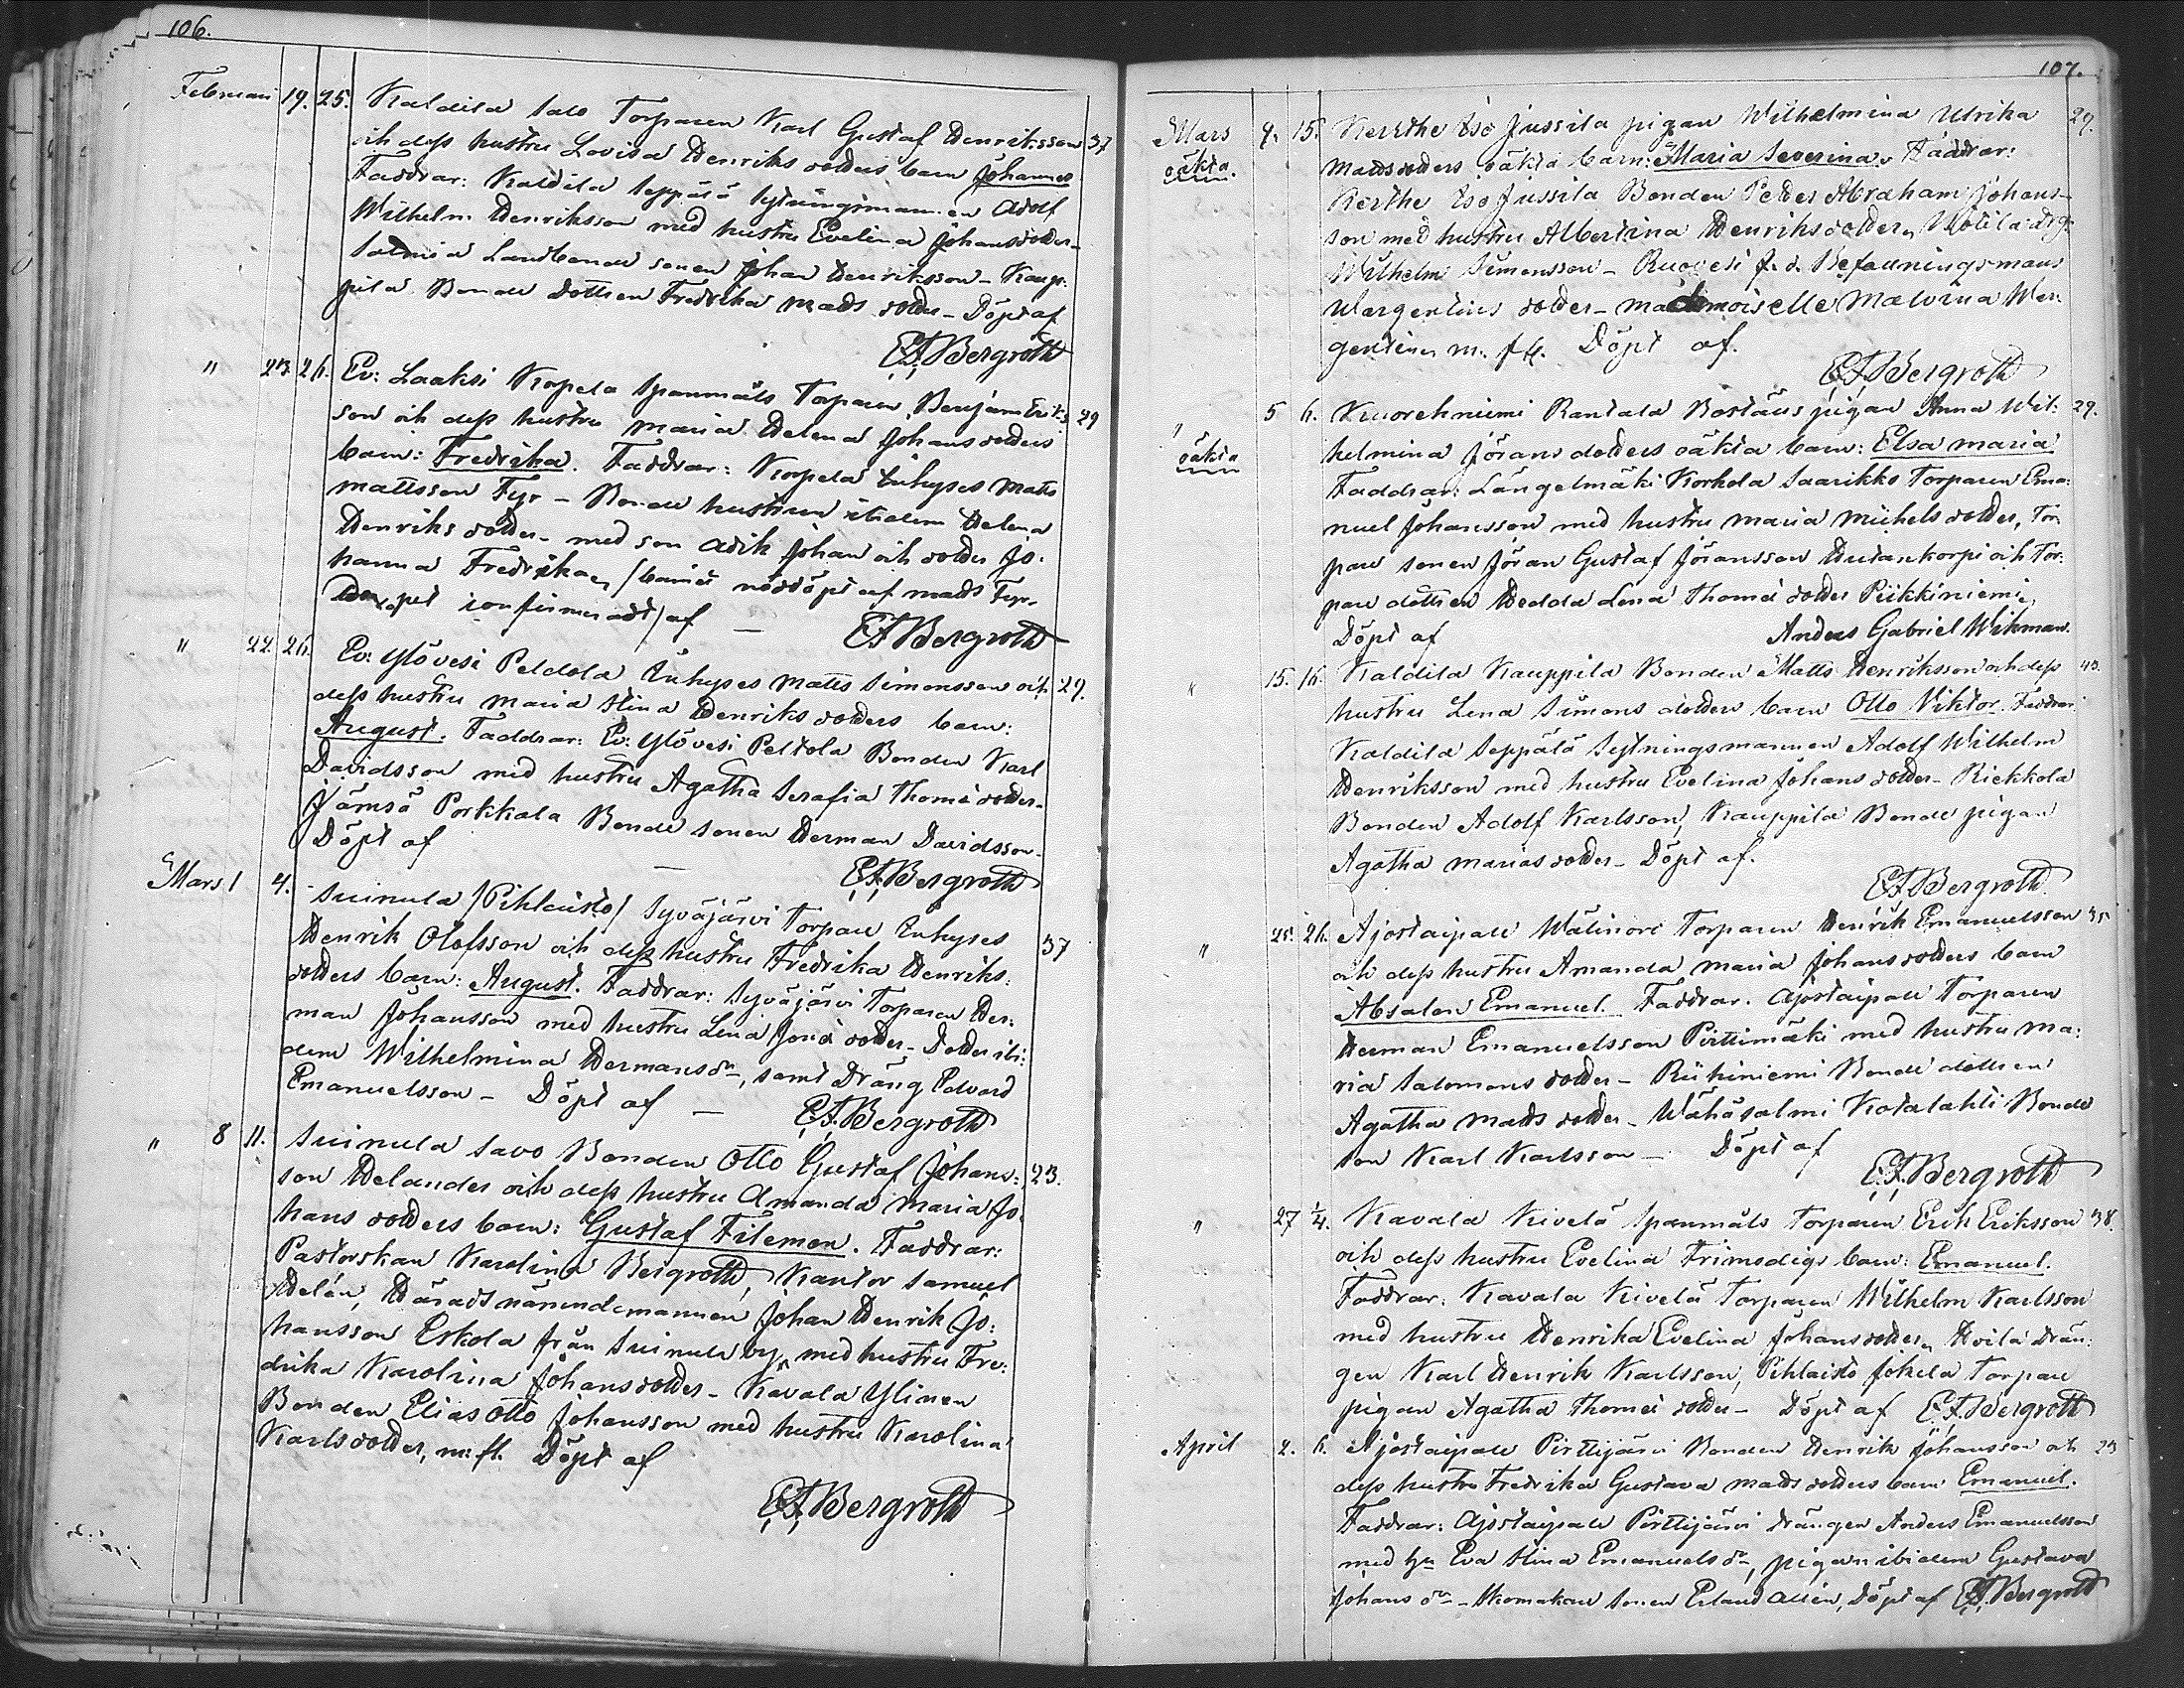 106.
Februari 19. 25. Kaldila Salo Torparen Karl Gustaf Henriksson 37
och dess hustru Lovisa Henriks dotters barn Johannes
Faddrar: Kaldila Seppälä Sytningsmannen Adolf
Wilhelm Henriksson med hustru Evelina Johansdotter-
Salmia Landbonde sonen Johan Henriksson - Kaup-
pila Bonde dottren Fredrika Mads dotter - Döpt af
E.F. Bergroth
" 23. 26. Ev: Laaksi Korpela Spanmåls Torparen Benjam Eriks- 29
son och dess hustru Maria Helena Johans dotters
barn: Fredrika. Faddrar: Korpela Inhyses Matts
Mattsson Fyr - Bonde hustrun ibidem Helena
Henriks dotter - med son Adik Johan och dotter Jo-
hanna Fredrika, /barnet nöddöpt af Mads Fyr,
dopet confirmeradt/ af — E.F. Bergroth
" 22. 26. Ev: Ylövesi Peldola Inhyses Matts Simonsson och 29.
dess hustru Maria Stina Henriks dotters barn:
August. Faddrar: Ev: Ylövesi Peltola Bonden Karl
Davidsson med hustru Agatha Serafia Thomæ dotter-
Jämsä Porkkala Bonde sonen Herman Davidsson-
Döpt af — E.F. Bergroth
Mars 1 4. Suinula /Pihlaisto/ Syväjärvi Torpare Inhyses
Henrik Olofsson och dess hustru Fredrika Henriks- 37
dotters barn: August. Faddrar: Syväjärvi Torparen Her-
man Johansson med hustru Lena Jona dotter - Dotter ibi-
dem Wilhelmina Hermansdr, samt Dräng Edvard
Emanuelsson - Döpt af — E.F. Bergroth
" 8 11. Suinula Savo Bonden Otto Gustaf Johans- 23.
son Helander och dess hustru Amanda Maria Jo-
hans dotters barn: Gustaf Filemon. Faddrar:
Pastorskan Karolina Bergroth, Kantor Samuel
Helén, Häradsnämndemannen Johan Henrik Jo-
hansson Eskola från Suinula by, med hustru Fre-
drika Karolina Johansdotter - Kavala Ylinen
Bonden Elias Otto Johansson med hustru Karolina
Karlsdotter, m. fl. Döpt af
E.F. Bergroth
107.
Mars 9. 15. Kerthe Iso Jussila pigan Wilhelmina Ulrika 29.
oäkta. Madsdotters oäkta barn: Maria Severina. Faddrar:
Kerthe Iso Jussila Bonden Petter Abraham Johans-
son med hustru Albertina Henriksdotter,
Wilhelm Simonsson - Ruovesi f. d. Befallningsmans
Wargentins dotter - Mademoiselle Malvina War-
gentin m. fl. Döpt af.
E.F. Bergroth
" 5 6. Kuorehniemi Rantala Bostäns pigan Anna Wil- 29.
oäkta helmina Jörans dotters oäkta barn: Elsa Maria
Faddrar: Längelmäki Korkola Saarikko Torparen Ema-
nuel Johansson med hustru Maria Michels dotter, Tor-
pare sonen Jöran Gustaf Jöransson Hutankorpi och Tor-
pare dottren Hedda Lena Thomæ dotter Piikkiniemi,
Döpt af Anders Gabriel Wikman.
" 15. 16. Kaldila Kauppila Bonden Matts Henriksson och dess 40.
hustru Lena Simons dotters barn Otto Viktor. Faddrar
Kaldila Seppälä Sytningsmannen Adolf Wilhelm
Henriksson med hustru Evelina Johans dotter - Riekkola
Bonden Adolf Karlsson, Kauppila Bonde pigan
Agatha Marias dotter - Döpt af.
E.F. Bergroth
" 25. 26. Ajostaipale Wälivori Torparen Henrik Emanuelsson 35
och dess hustru Amanda Maria Johans dotters barn
Absalon Emanuel. Faddrar. Ajostaipale Torparen
Herman Emanuelsson Pirttimäki med hustru Ma-
ria Salomons dotter - Riihiniemi Bonde dottren
Agatha Mads dotter - Wähäsalmi Kotalahti Bonde
son Karl Karlsson — Döpt af
E.F. Bergroth
" 27 1/4. Kavala Kivelä Spanmåls Torparen Erik Eriksson 38.
och dess hustru Evelina Frimodigs barn: Emanuel.
Faddrar: Kavala Kivelä Torparen Wilhelm Karlsson
med hustru Henrika Evelina Johansdotter, Hoila Drän-
gen Karl Henrik Karlsson, Pihlaisto Jokela Torpare
pigan Agatha Thomæ dotter - Döpt af E.F. Bergroth
April 2. 6. Ajostaipale Pirttijärvi Bonden Henrik Johansson och 23
dess hustru Fredrika Gustava Mads dotters barn Emanuel.
Faddrar: Ajostaipale Pirttijärvi Drängen Anders Emanuelsson
med hu Eva Stina Emanuelsdr, pigan ibidem Gustava
Johans dr - Skomakare sonen Erland Allén, Döpt af E.F. Bergroth